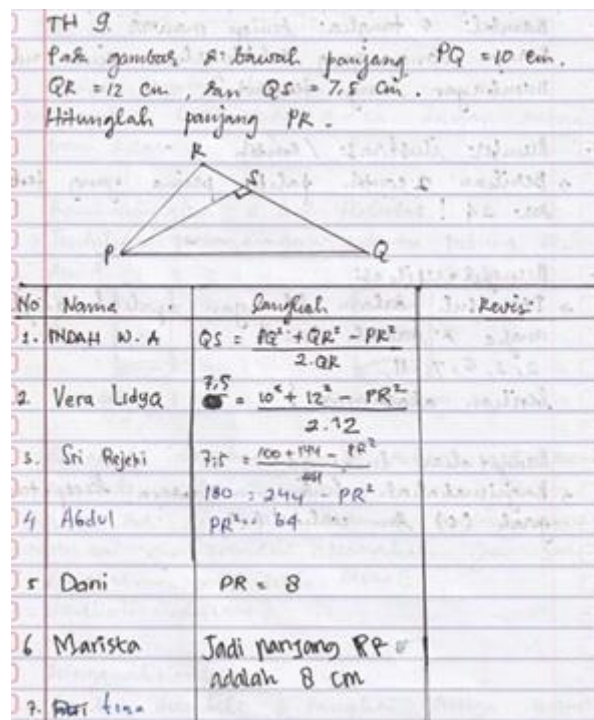 TH 9
Pada gambar di bawah panjang PQ = 10 cm,
QR = 12 cm, dan QS = 7,5 cm.
Hitunglah panjang PR.
R
S
P
Q
No Nama Langkah Revisi
1. INDAH W.A QS = PQ² + QR² - PR² / 2.QR
2. Vera Lidya 7,5 = 10² + 12² - PR² / 2.12
3. Sri Rejeki 7,5 = 100 + 144 - PR² /
180 = 244 - PR²
4 Abdul PR² = 64
5 Dani PR = 8
6 Mariska Jadi panjang PR
adalah 8 cm
7.